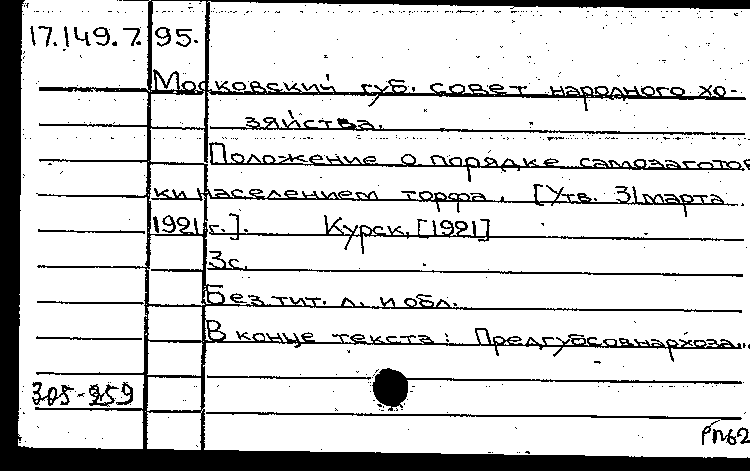 17.149.7.95.
Московский губ. совет народного хо-
зяйства.
Положение о порядке самозаготов
ки населением торфа. [Утв. 31 марта
1921 г.]. Курск, [1921]
3с.
Без тит. л. и обл.
В конце текста: Предгубсовнархоза...
305-959
РП62